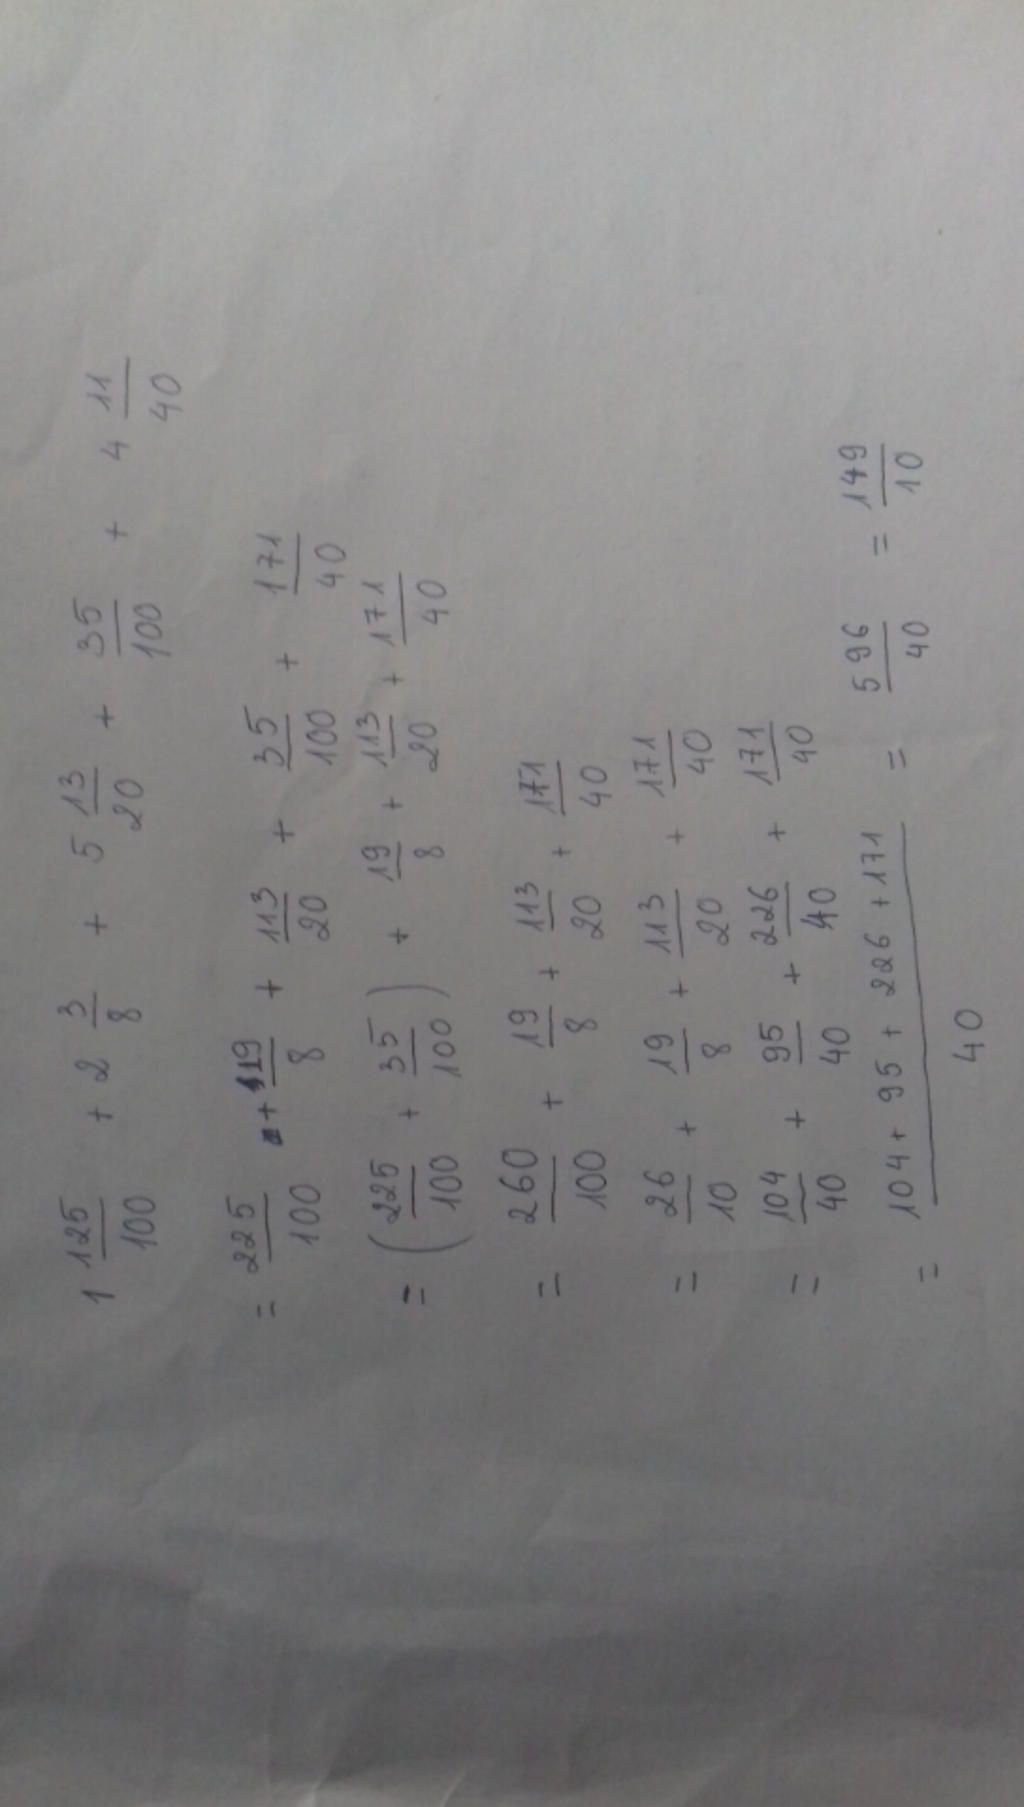 1 125/100 + 2 3/8 + 5 13/20 + 35/100 + 4 11/40
= 225/100 + 19/8 + 113/20 + 35/100 + 171/40
= (225/100 + 35/100) + 19/8 + 113/20 + 171/40
= 260/100 + 19/8 + 113/20 + 171/40
= 26/10 + 19/8 + 113/20 + 171/40
= 104/40 + 95/40 + 226/40 + 171/40
= 104 + 95 + 226 + 171/40 = 596/40 = 149/10